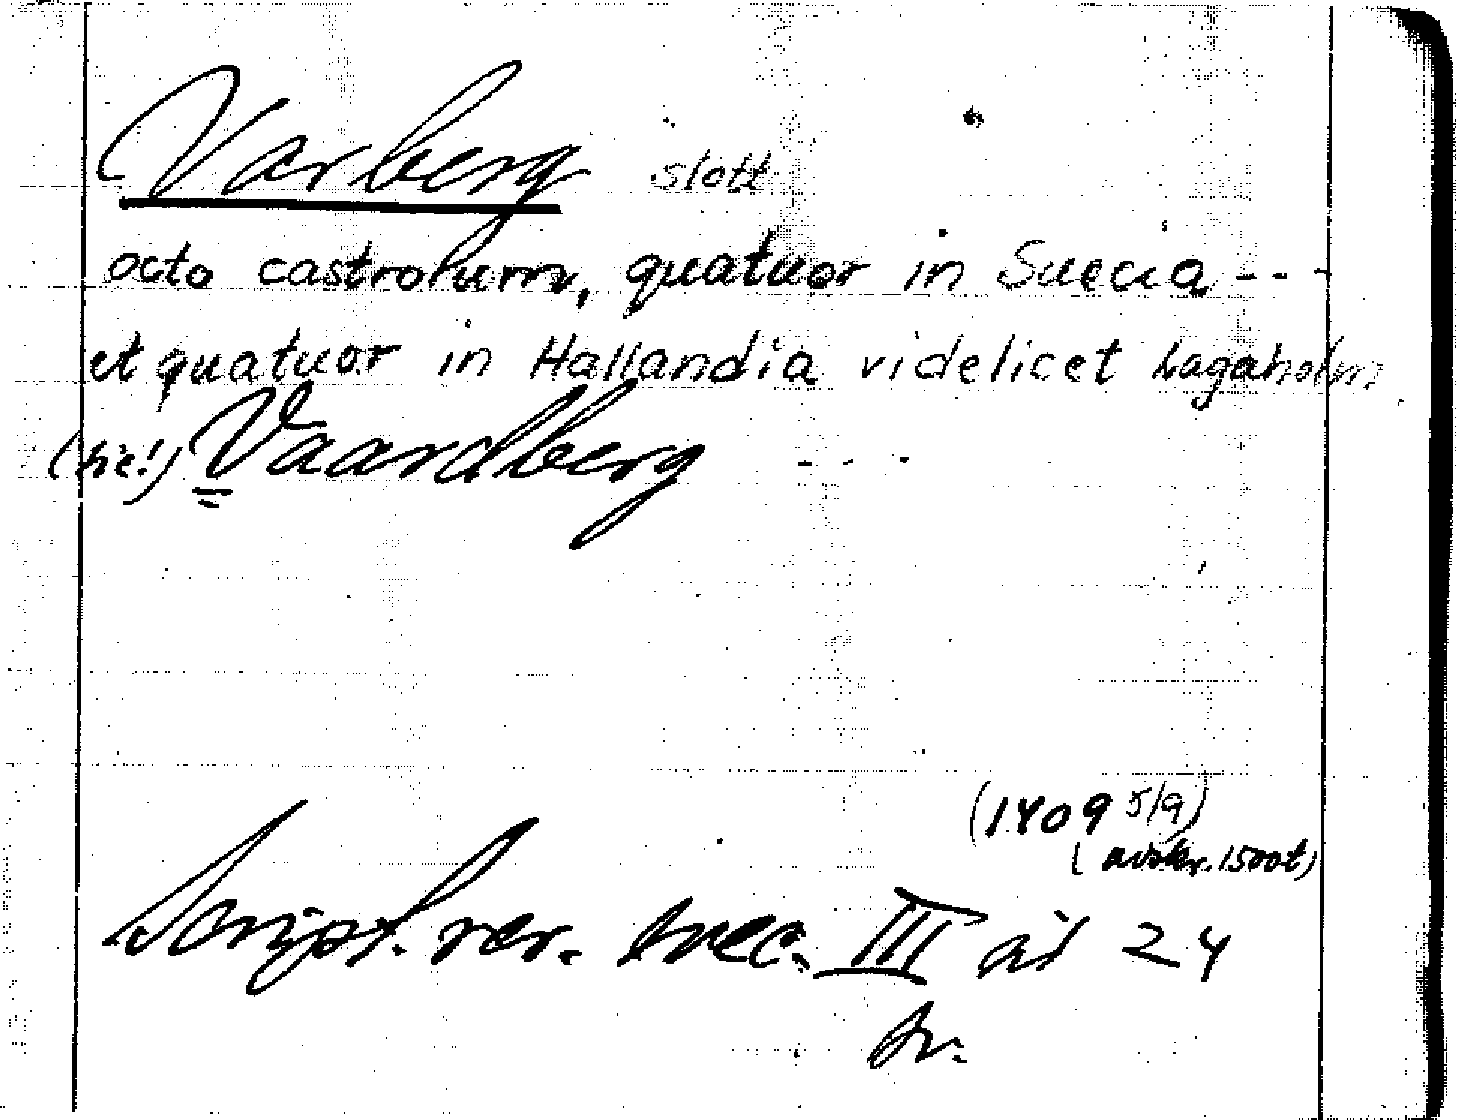 Varberg slott
octo castrorum, quatuor in Suecia - - -
et quatuor in Hallandia videlicet Lagaholm
(sic!) Vaardberg - - -
(1409 5/9)
(avskr. 1500t)
Script. rer. suec. III
24